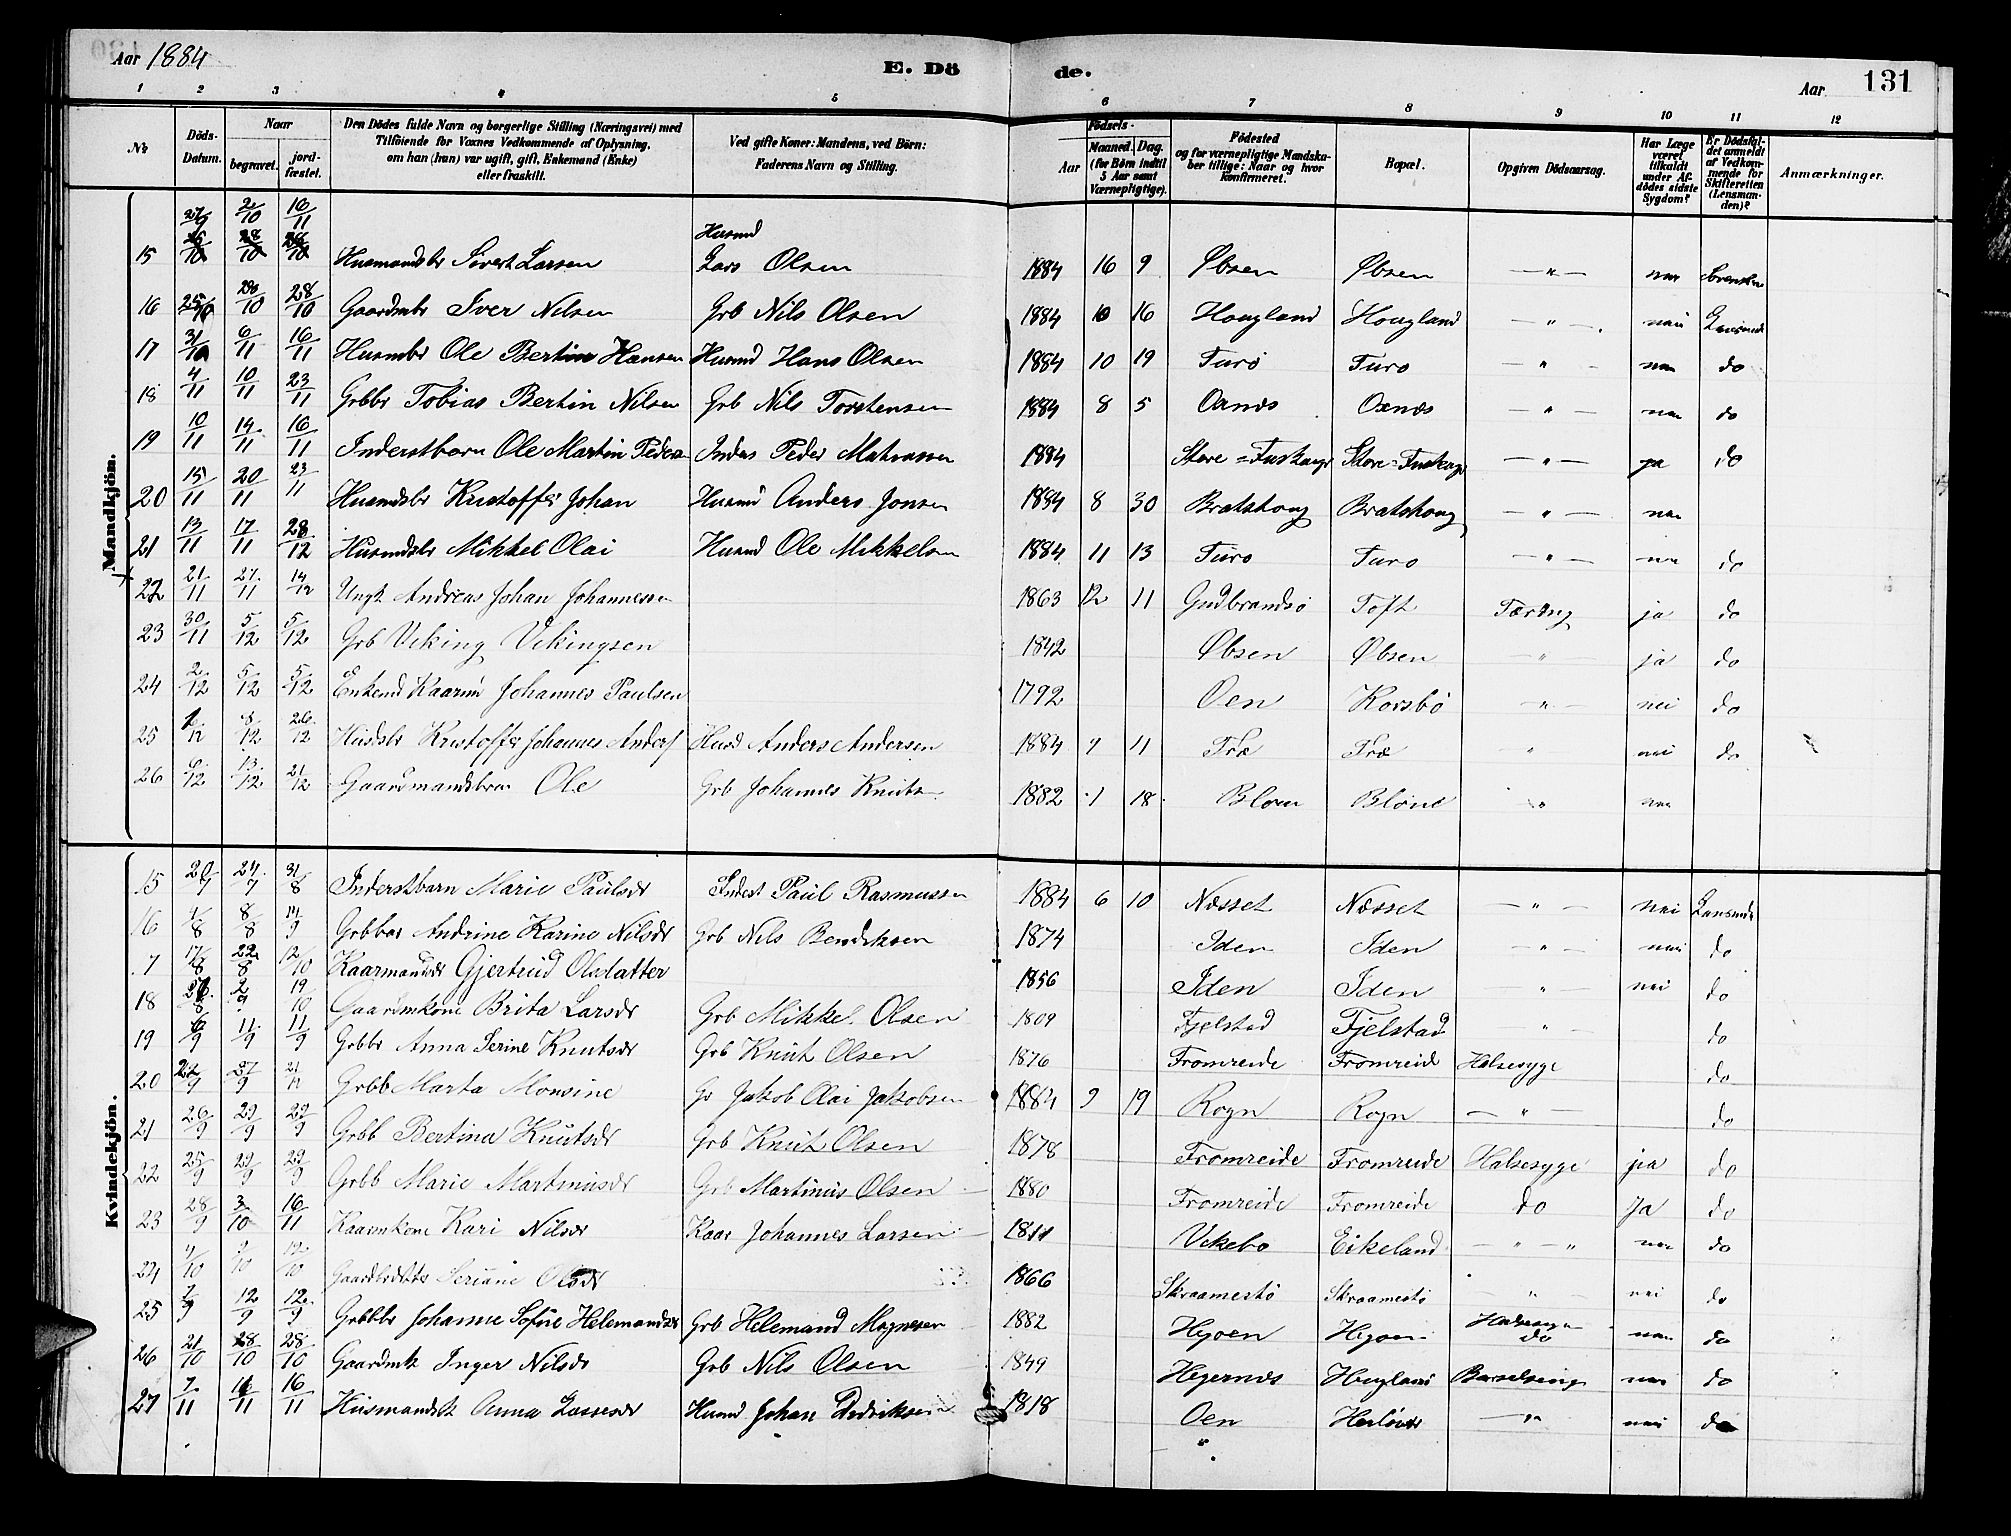 Aar 1884 E. Dö de. Aar 131
1 2 3 4 5 6 7 8 9 10 11 12
№ Döds-Datum. Naar begravet. jord-fæstet. Den Dödes fulde Navn og borgerlige Stilling (Næringsvei) med Tilföiende for Voxnes Vedkommende af Oplysning, om han (hun) var ugift, gift, Enkemand (Enke) eller fraskilt. Ved gifte Koner: Mandens, ved Börn: Faderens Navn og Stilling. Födsels- Aar Maaned. Dag. (for Börn indtil 5 Aar samt Værnepligtige). Födested og for værnepligtige Mandskaber tillige: Naar og hvor konfirmeret. Bopæl. Opgiven Dödsaarsag. Har Læge været tilkaldt under Afdödes sidste Sygdom? Er Dödsfaldet anmeldt af Vedkommende for Skifteretten (Lensmanden)? Anmærkninger.
Mandkjön.
15 27/9 2/10 16/11 Husmandsbr Sivert Larsen Husmd Lars Olsen 1884 16 9 Øbsen Øbsen —"—
16 25/10 28/10 28/10 Gaardmbr Iver Nilsen Grb Nils Olsen 1884 10 16 Hougland Hougland —"— nei Lensmd
17 31/10 6/11 16/11 Husmbr Ole Bertin Hansen Husmd Hans Olsen 1884 10 19 Turö Turo " nei do
18 4/11 10/11 23/11 Grbbr Tobias Bertin Nilsen Grb Nils Torstensen 1884 8 5 Oxnes Oxnes —"— nei do
19 10/11 14/11 16/11 Inderstbarn Ole Martin Peders Inders Peder 1884 —"— ja do
20 15/11 20/11 23/11 Husmdsbr Kristoffer Johan Husmd Anders Jonsen 1884 8 30 Bratshoug Bratshoug —"— nei
21 13/11 17/11 28/12 Husmdsbr Mikkel Olai Husmd Ole Mikkelsen 1884 11 13 Turo Turo —"— nei do
22 21/11 27/11 14/12 Ungk Andreas Johan Johannesen 1863 12 11 Gudbrandsö Toft Tæring ja do
23 30/11 5/12 5/12 Grb Viking Vikingsen 1842 Øbsen Øbsen —"— ja do
24 2/12 5/12 5/12 Enkemd Kaarm Johannes Paulsen 1792 Oen Korsbö —"— nei do
25 8/12 26/12 Husdsbr Kristoffer Johannes Anders Husd Anders Andersen 1884 11 Træ Træ " nei do
26 13/12 21/12 Gaardmandsbarn Ole Grb Johannes Knuts 1882 1 18 Blom Blone " nei
Kvindekjön.
15 20/7 24/7 31/8 Inderstbarn Marie Paulsdr Inderst Paul Rasmussen 1884 6 10 Næsset Næsset —"— nei Lensmd
16 4/8 8/8 14/9 Grbbar Andrine Karine Nilsdr Grb Nils Bendiksen 1874 Iden Iden —"— nei do
7 17/8 22/8 12/10 Kaarmandsdr Gjertrud Olsdatter 1856 Iden Iden —"— nei do
18 2/9 19/10 Gaardmkone Brita Larsdr Grb Mikkel Olsen 1809 Fjelstad Fjelstad "— do
19 11/9 11/9 Grbbr Anna Serine Knutsdr Grb Knut Olsen 1876 Fromreide Fromreide Halsesyge do
20 27/9 Grbb Marta Monsine Gr Jakob Olai Jakobsen 1884 9 19 Rogn Rogn —"— do
21 26/9 29/9 29/9 Grbb Bertina Knutsdr Grb Knut Olsen 1878 Fromreide Fromreide Halsesyge ja do
22 25/9 29/9 29/9 Grbb Marie Martinusdr Grb Martinus Olsen 1880 Fromreide Fromreide do Ja do
23 28/9 3/10 16/11 Kaarmkone Kari Nilsdr Kaar Johannes Larsen 1811 Vikebo Eikeland —"—" nei do
24 4/10 9/10 12/10 Seriane Olsdr 1866 Skraamestö Skraamestö —"— nei do
25 7/9 12/9 12/9 Grbbbr Johanne Sofie Helemandsdr Grb Helemand Magnesen 1882 Hejoen Hejoen Halsesyge do nei do
26 21/10 28/10 28/10 Gaardmk Inger Nilsdr Grb Nils Olsen 1849 Hegernes Hougland Barselseng nei do
27 7/11 11/11 16/11 Husmandsk Anna Lassesdr Husmd Johan Didriksen 1818 Oen —"— nei do